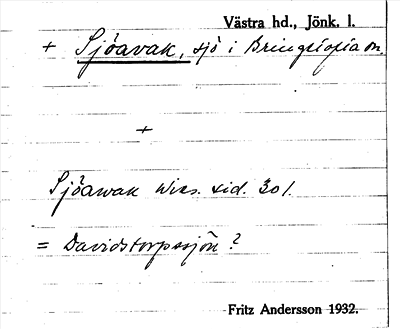 Västra hd., Jönk. l.
+ Sjöavak, sjö i Bringetofta sn.
+
Sjöawak Wies. sid. 301.
= Davidstorpssjön?
Fritz Andersson 1932.